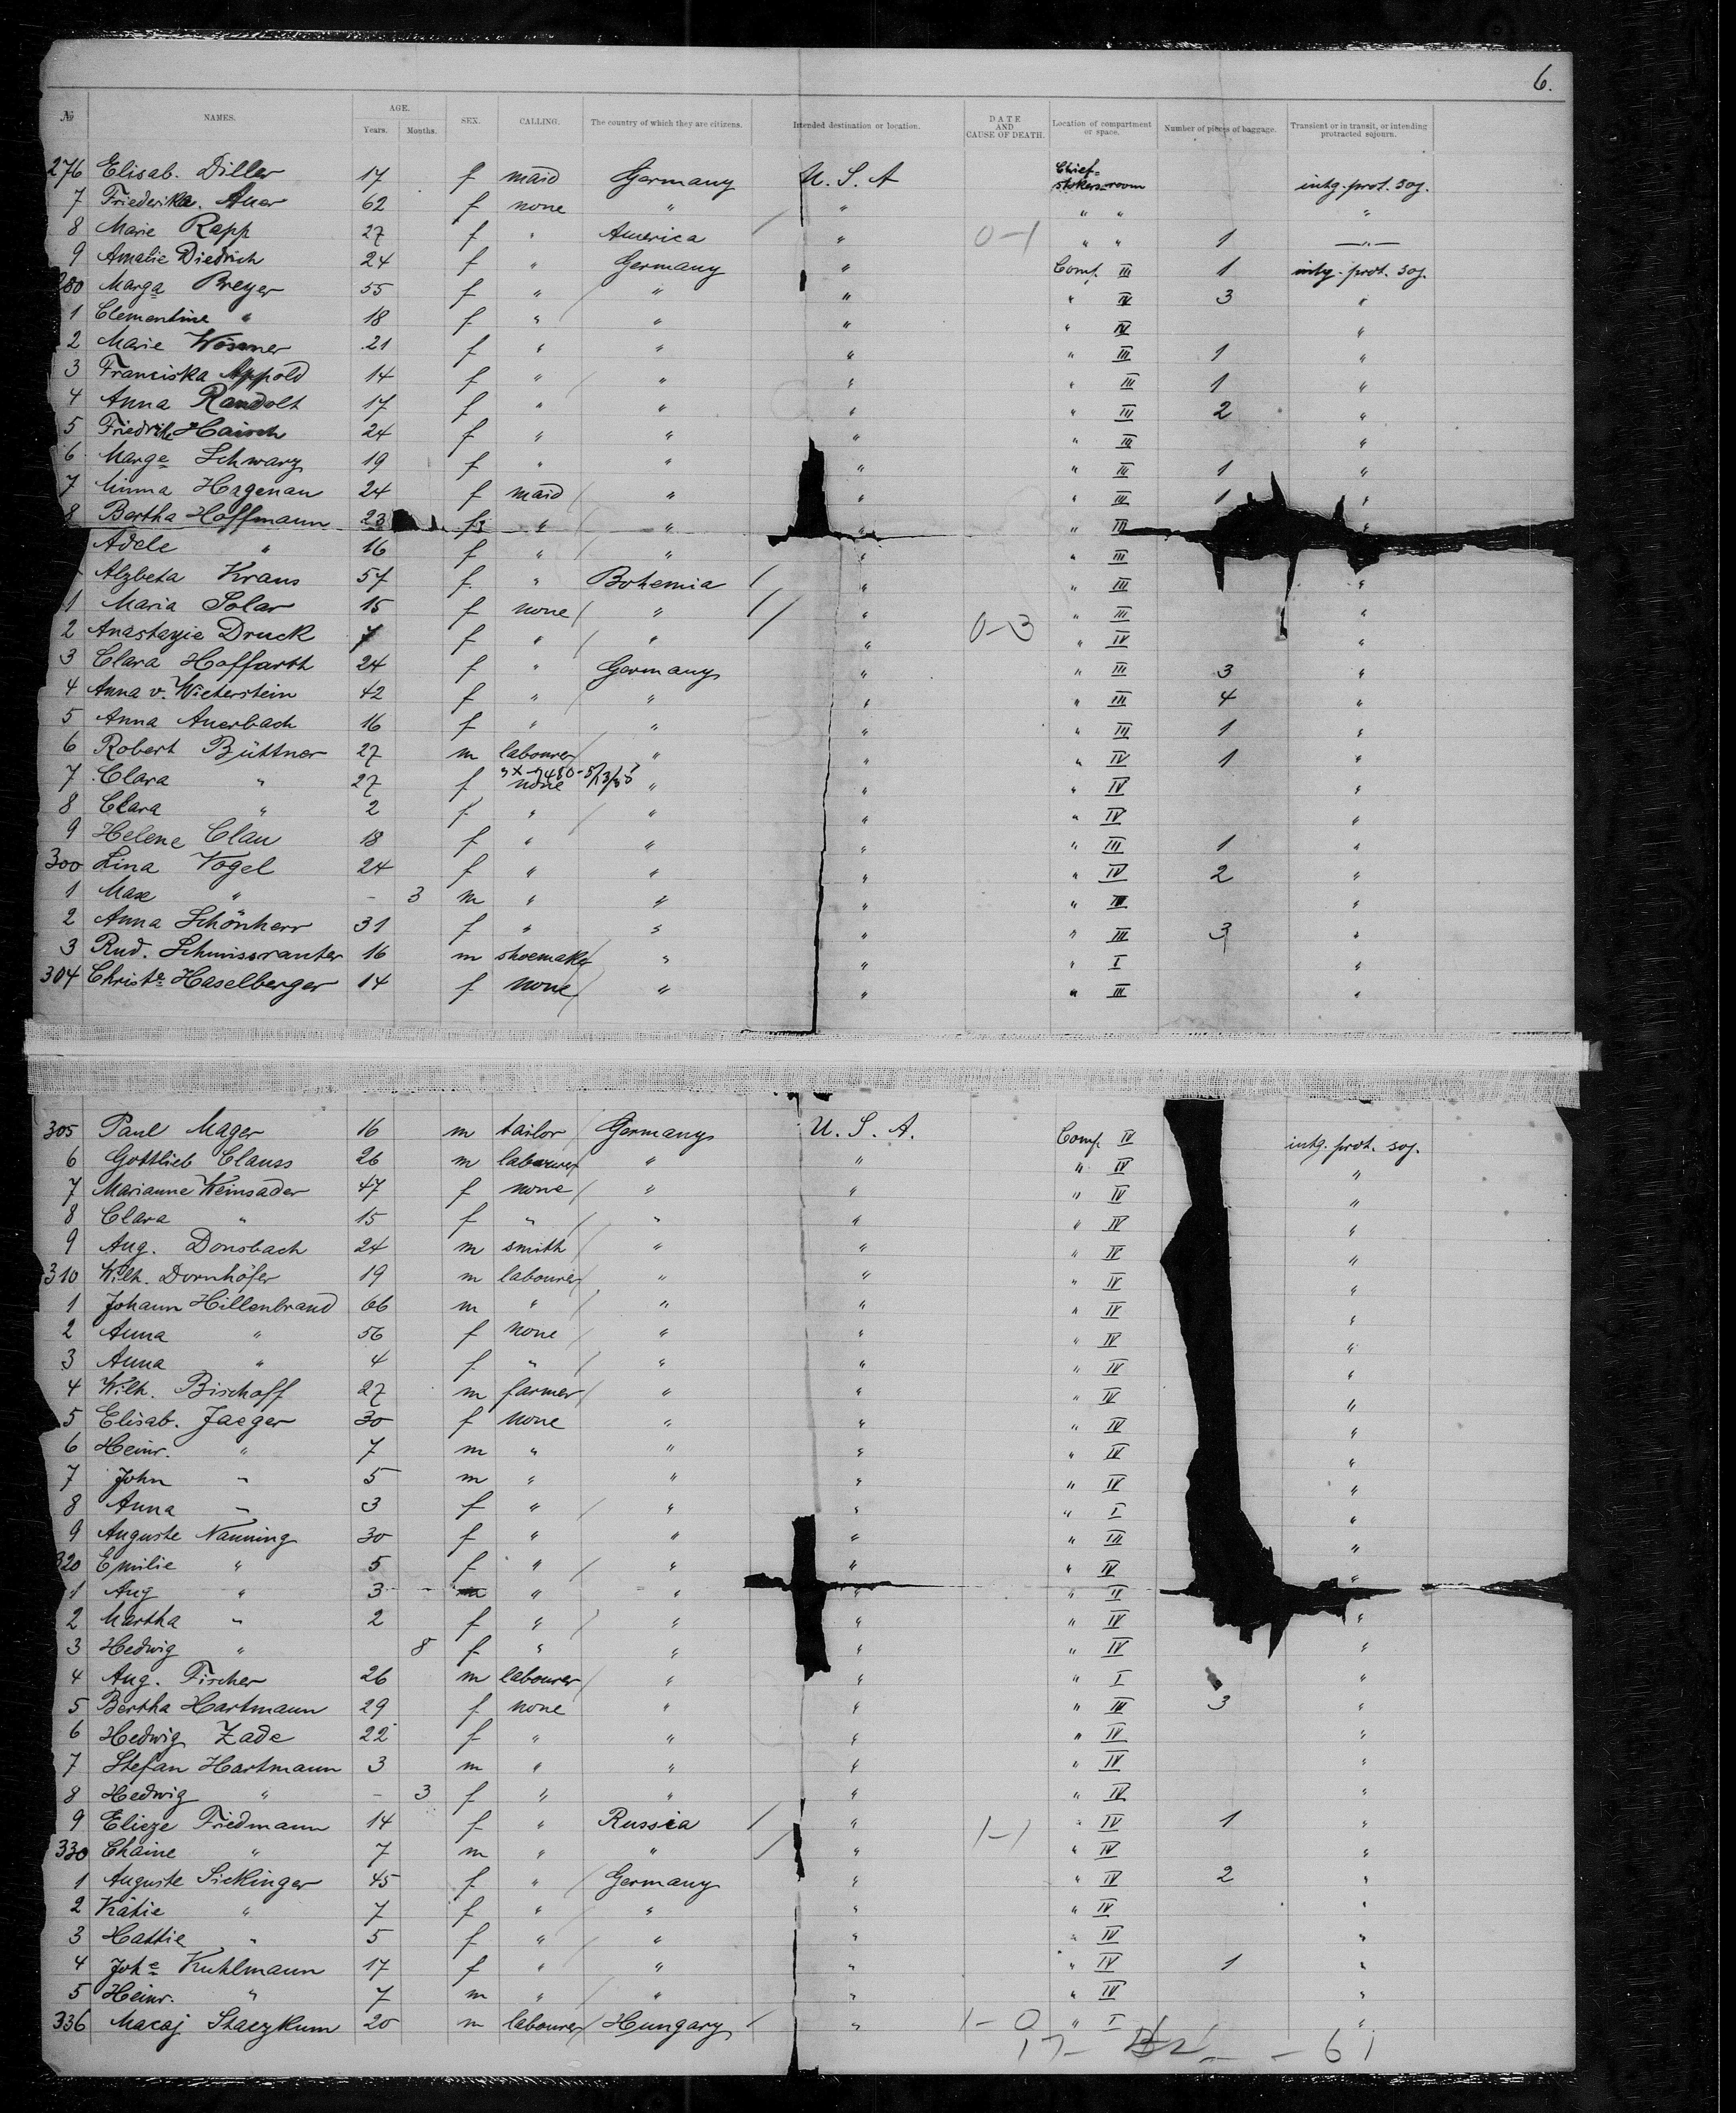 6.
№ NAMES. AGE. Years. Months. SEX. CALLING. The country of which they are citizens. Intended destination or location. DATE AND CAUSE OF DEATH. Location of compartment or space. Number of pieces of baggage. Transient or in transit, or intending protracted sojourn.
276 Elisab. Diller 17 f maid Germany U. S. A Chief-stokers-room intg. prot. soj.
7 Friederika. Auer 62 f none " " " " "
8 Marie Rapp 27 f " America " 0-1 " " 1 — " —
9 Amalie Diedrich 24 f " Germany " Comp. III 1 intg. prot. soj.
280 Marga Breyer 55 f " " " " IV 3 "
1 Clementine " 18 f " " " " IV "
2 Marie Wössner 21 f " " " " III 1 "
3 Franciska Appold 14 f " " " " III 1 "
4 Anna Randolt 17 f " " " " III 2 "
5 Friedrike Haisch 24 f " " " " III "
6 Marge Schwarz 19 f " " " " III 1 "
7 Minna Hagenau 24 f maid " " " III 1 "
8 Bertha Hoffmann 23 f " " " " III "
Adele " 16 f " " " " III
Alzbeta Kraus 57 f " Bohemia " " III "
1 Maria Solar 15 f none " " " III "
2 Anastazie Druck 7 f " " " 0-3 " IV "
3 Clara Hoffarth 24 f " Germany " " III 3 "
4 Anna v. Wieterstein 42 f " " " " III 4 "
5 Anna Auerbach 16 f " " " " III 1 "
6 Robert Büttner 27 m labourer " " " IV 1 "
7 Clara " 27 f none " " " IV "
8 Clara " 2 f " " " " IV "
9 Helene Clau 18 f " " " " III 1 "
300 Lina Vogel 24 f " " " " IV 2 "
1 Max " - 3 m " " " " III "
2 Anna Schönherr 31 f " " " " III 3 "
3 Rud. Schmissranter 16 m shoemaker " " " I "
304 Christe Haselberger 14 f none " " " III "
305 Paul Mager 16 m tailor Germany U. S. A. Comp. IV intg. prot. soj.
6 Gottlieb Clauss 26 m labourer " " " IV "
7 Marianne Weinsader 47 f none " " " IV "
8 Clara " 15 f " " " " IV "
9 Aug. Donsbach 24 m smith " " " IV "
310 Wilh. Dornhöfer 19 m labourer " " " IV "
1 Johann Hillenbrand 66 m " " " " IV "
2 Anna " 56 f none " " " IV "
3 Anna " 4 f " " " " IV "
4 Wilh. Bischoff 27 m farmer " " " IV "
5 Elisab. Jaeger 30 f none " " " IV "
6 Heinr. " 7 m " " " " IV "
7 John " 5 m " " " " IV "
8 Anna " 3 f " " " " I "
9 Auguste Nanning 30 f " " " " III "
320 Emilie " 5 f " " " " IV "
1 Aug " 3 m " " " "
2 Martha " 2 f " " " " IV "
3 Hedwig " 8 f " " " " IV "
4 Aug. Fischer 26 m labourer " " " I "
5 Bertha Hartmann 29 f none " " " III 3 "
6 Hedwig Zade 22 f " " " " IV "
7 Stefan Hartmann 3 m " " " " IV "
8 Hedwig " - 3 f " " " " IV "
9 Elieze Friedmann 14 f " Russia " 1-1 " IV 1 "
330 Chaine " 7 m " " " " IV "
1 Auguste Sickinger 45 f " Germany " " IV 2 "
2 Kätie " 7 f " " " " IV "
3 Hattie " 5 f " " " " IV "
4 Johe Kuhlmann 17 f " " " " IV 1 "
5 Heinr. " 7 m " " " " IV "
336 Macaj Staczkum 20 m labourer Hungary " 1-0 " I "
17- - 61